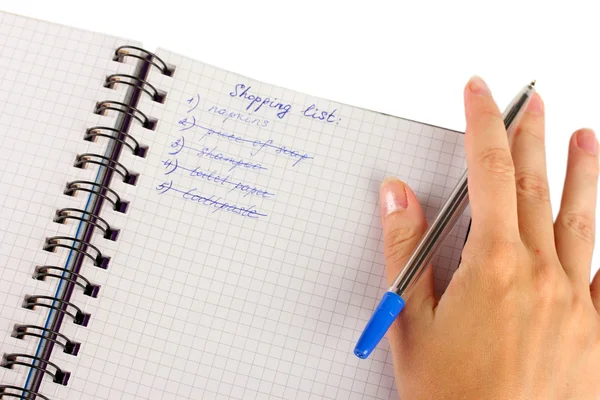 Shopping list:
1) napkins
2) piece of soap
3) Shampoo
4) toilet paper
5) toothpaste